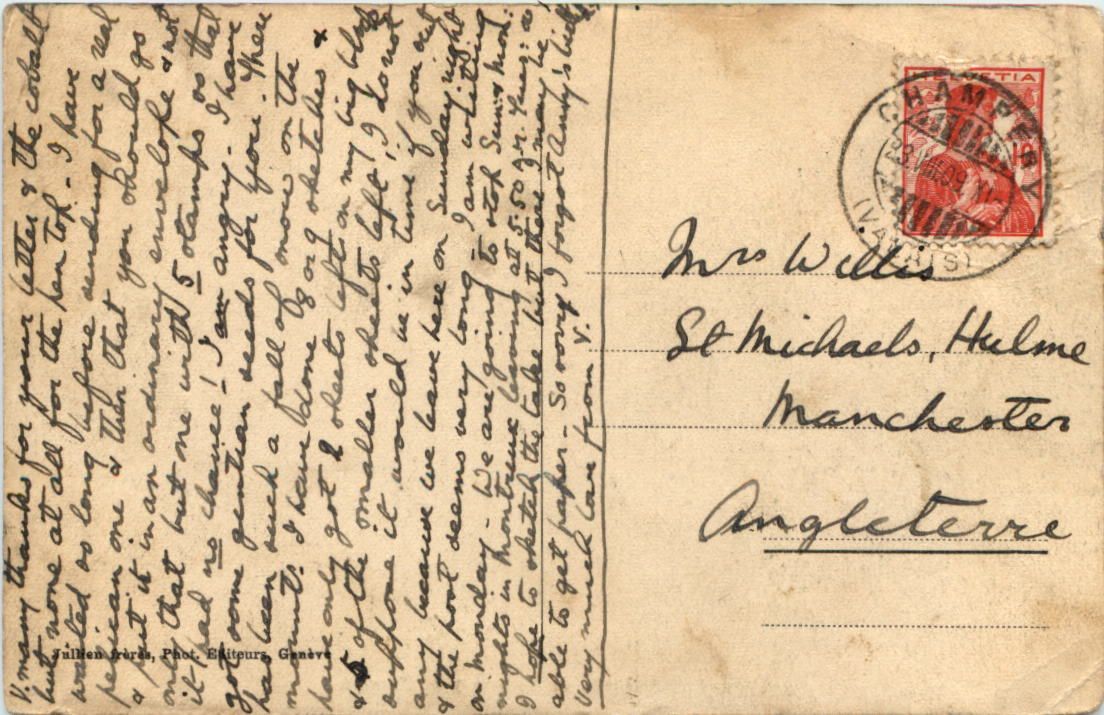 V. many thanks for your letter & the cobalt
but none at all for the pen top - I have
waited so long before sending for a real
pelican one & then that you should go
& put it in an ordinary envelope & not
only that but one with 5 stamps so that
it had no chance! I am angry. I have
got some gentian seeds for you. There
has been such a fall of snow on the
mounts. I have done 8 or 9 sketches &
have only got 2 sheets left on my big block
& 5 of the smaller sheets left, I do not
suppose it would be in time if you sent
any because we leave here on Sunday night
& the post seems very long - I am writing
on Monday - We are going to stop Sun: & Mon:
nights in Montreux leaving at 5.50
I hope to sketch the lake but there may be
able to get paper - So sorry I forgot Andy's
Very much love from Y.
Jullien frères, Phot. Editeurs, Genève
HELVETIA
CHAMPÉRY
(VALAIS)
Mrs Willis
St Michaels, Hulme
Manchester
Angleterre